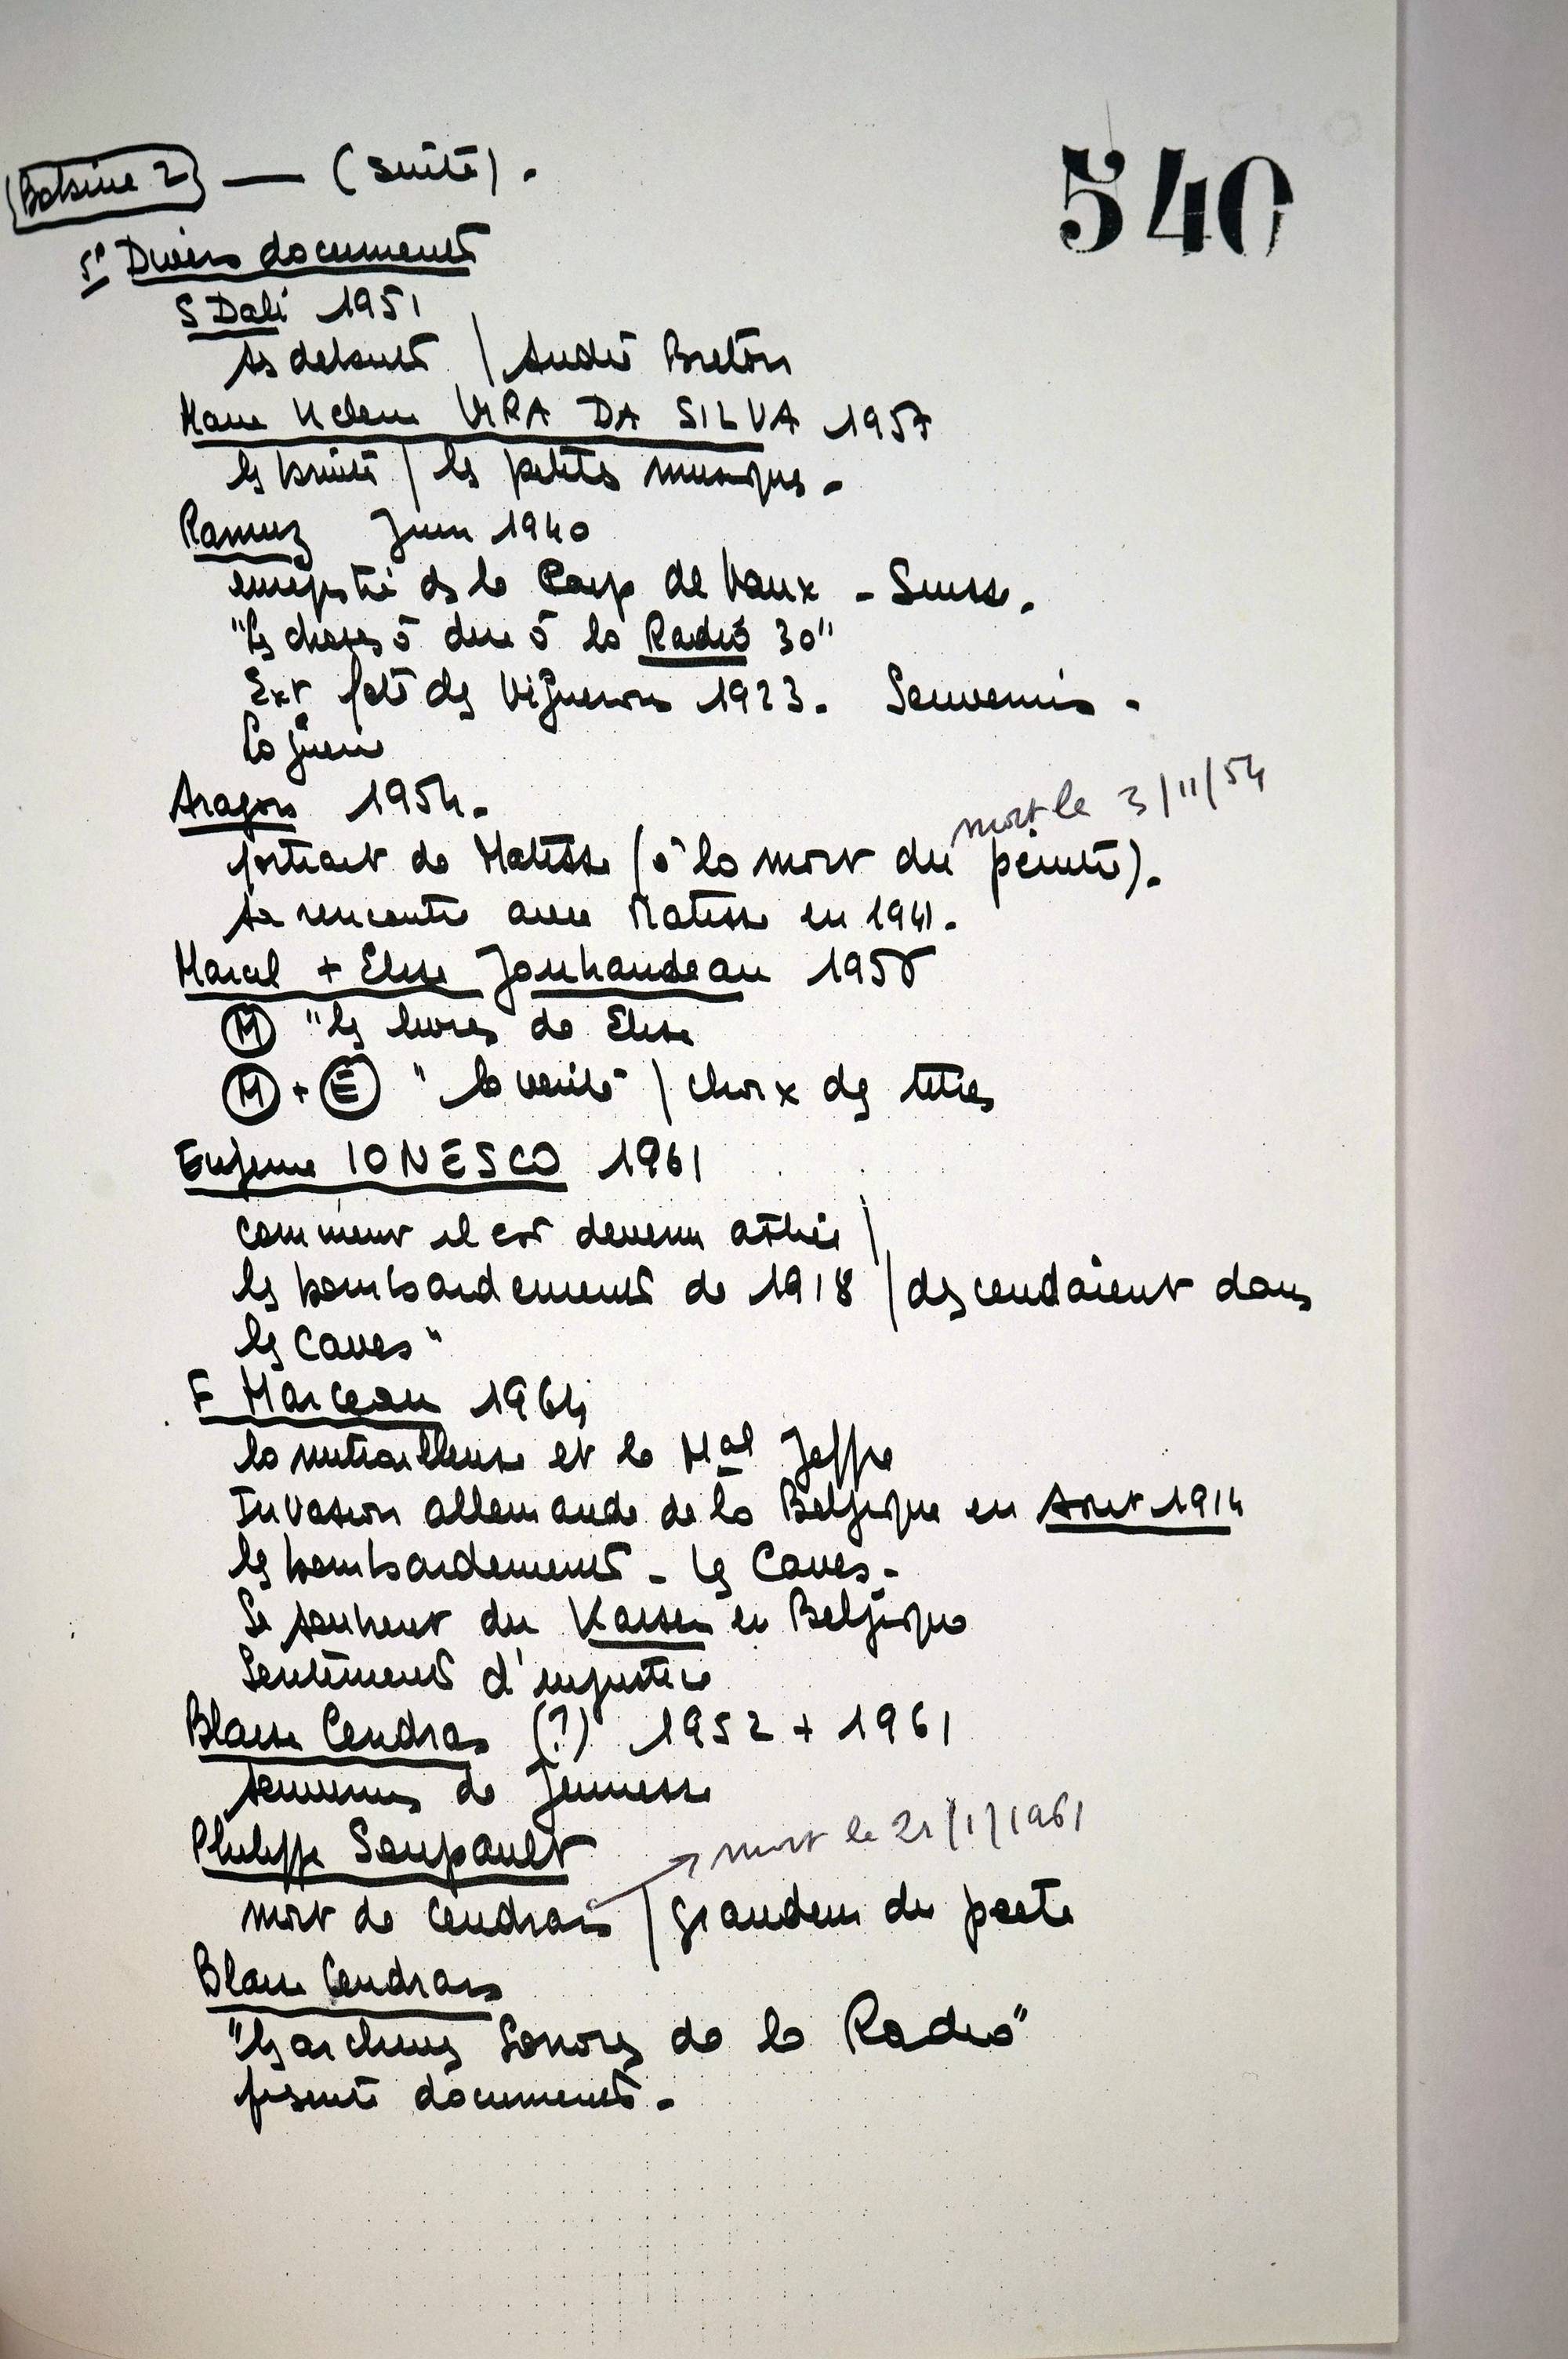 Bobine 2 — (suite).
540
5° Divers documents
S Dali 1951
ses debuts / André Breton
Marie Helene VIEIRA DA SILVA 1957
les bruits / les petites musiques -
Ramuz Juin 1940
enregistré ds le de Vaux - Suisse.
"les choses à dire à la Radio 30"
Ext fete des Vignerons 1923. Souvenirs -
La guerre
Aragon 1954.
mort le 3/11/54
portrait de Matisse (à la mort du peintre).
sa rencontre avec Matisse en 1941.
Marcel + Elise Jouhandeau 1958
M "les livres de Elise
M + E "la vérité" / choix des titres
Eugene IONESCO 1961
comment il est devenu athée /
les bombardements de 1918 / descendaient dans
les caves"
F Marceau 1964
la mitrailleuse et le Mal Joffre
Invasion allemande de la Belgique en Aout 1914
les bombardements - les Caves -
Se souvient du Kaiser en Belgique
Sentiments d'injustice
Blaise Cendras (?) 1952 + 1961
souvenirs de Jeunesse
Philippe Soupault
mort le 21/1/1961
mort de Cendrars / grandeur du poete
Blaise Cendrars
"les archives Sonores de la Radio"
presente documents -